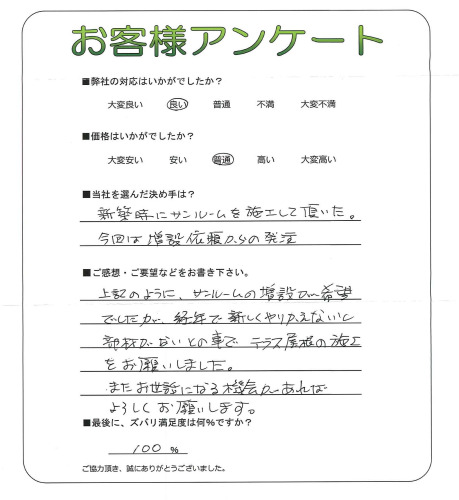 お客様アンケート
■弊社の対応はいかがでしたか？
大変良い 良い 普通 不満 大変不満
■価格はいかがでしたか？
大変安い 安い 普通 高い 大変高い
■当社を選んだ決め手は？
新築時にサンルームを施工して頂いた。
今回は増設依頼からの発注
■ご感想・ご要望などをお書き下さい。
上記のように、サンルームの増設が希望
でしたが、経年で新しくやりかえないと
部材がないとの事で テラス屋根の施工
をお願いしました。
またお世話になる機会があれば
よろしくお願いします。
■最後に、ズバリ満足度は何％ですか？
100 ％
ご協力頂き、誠にありがとうございました。